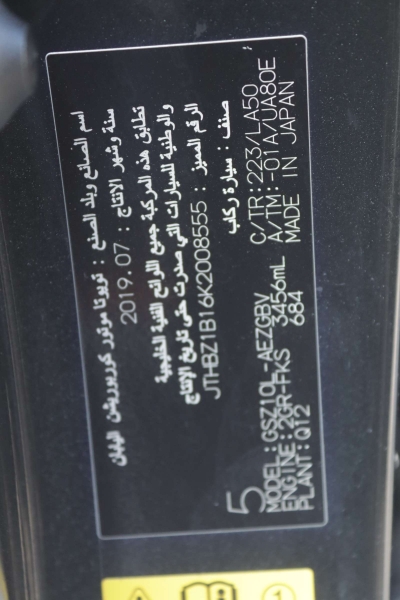 اسم الصانع وبلد الصنع : تويوتا موتور كوربوريشن اليابان
سنة وشهر الانتاج : 2019.07
تطابق هذه المركبة جميع اللوائح الفنية الخليجية
والوطنية للسيارات التي صدرت حتى تاريخ الإنتاج
الرقم المميز : JTHBZ1B16K2008555
صنف : سيارة ركاب
5
MODEL:GSZ10L-AEZGBV C/TR:223/LA50
ENGINE:2GR-FKS 3456mL A/TM:-01A/UA80E
PLANT:Q12 684 MADE IN JAPAN